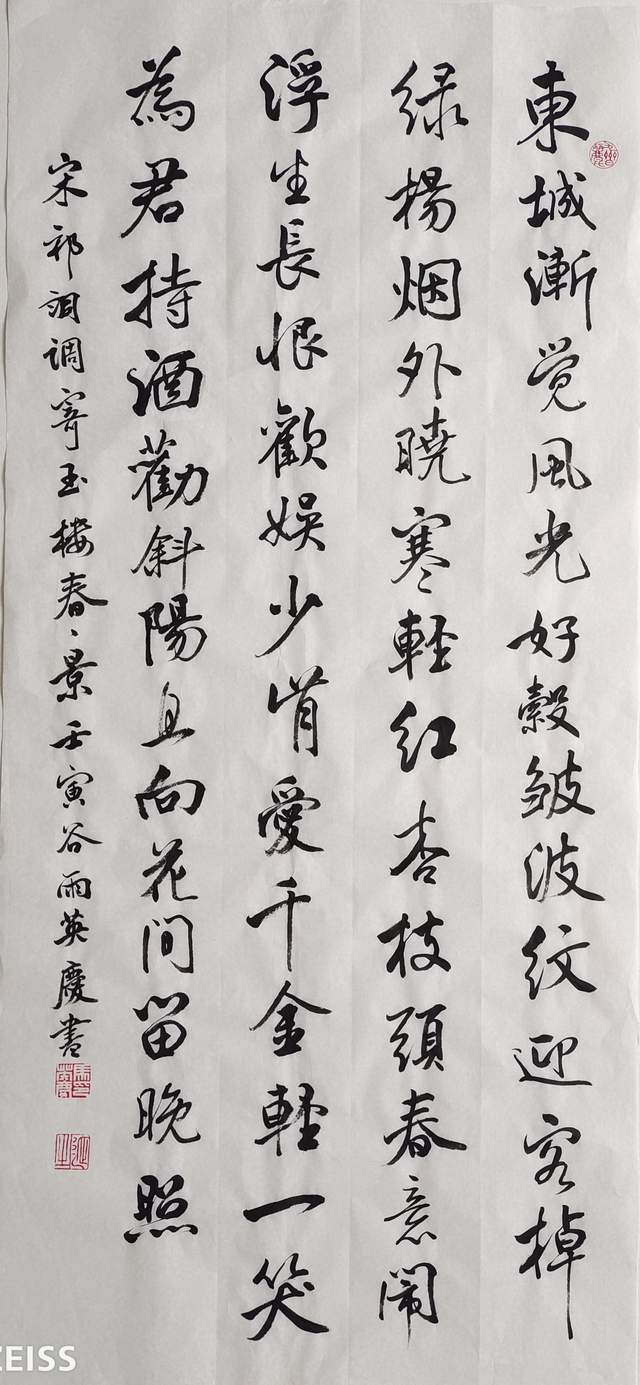 東城漸觉風光好縠皱波纹迎客棹
绿楊烟外曉寒軽红杏枝頭春意闹
浮生長恨歡娱少肯愛千金軽一笑
為君持酒勸斜陽且向花间留晚照
宋祁词调寄玉楼春、景壬寅谷雨英慶书
ZEISS